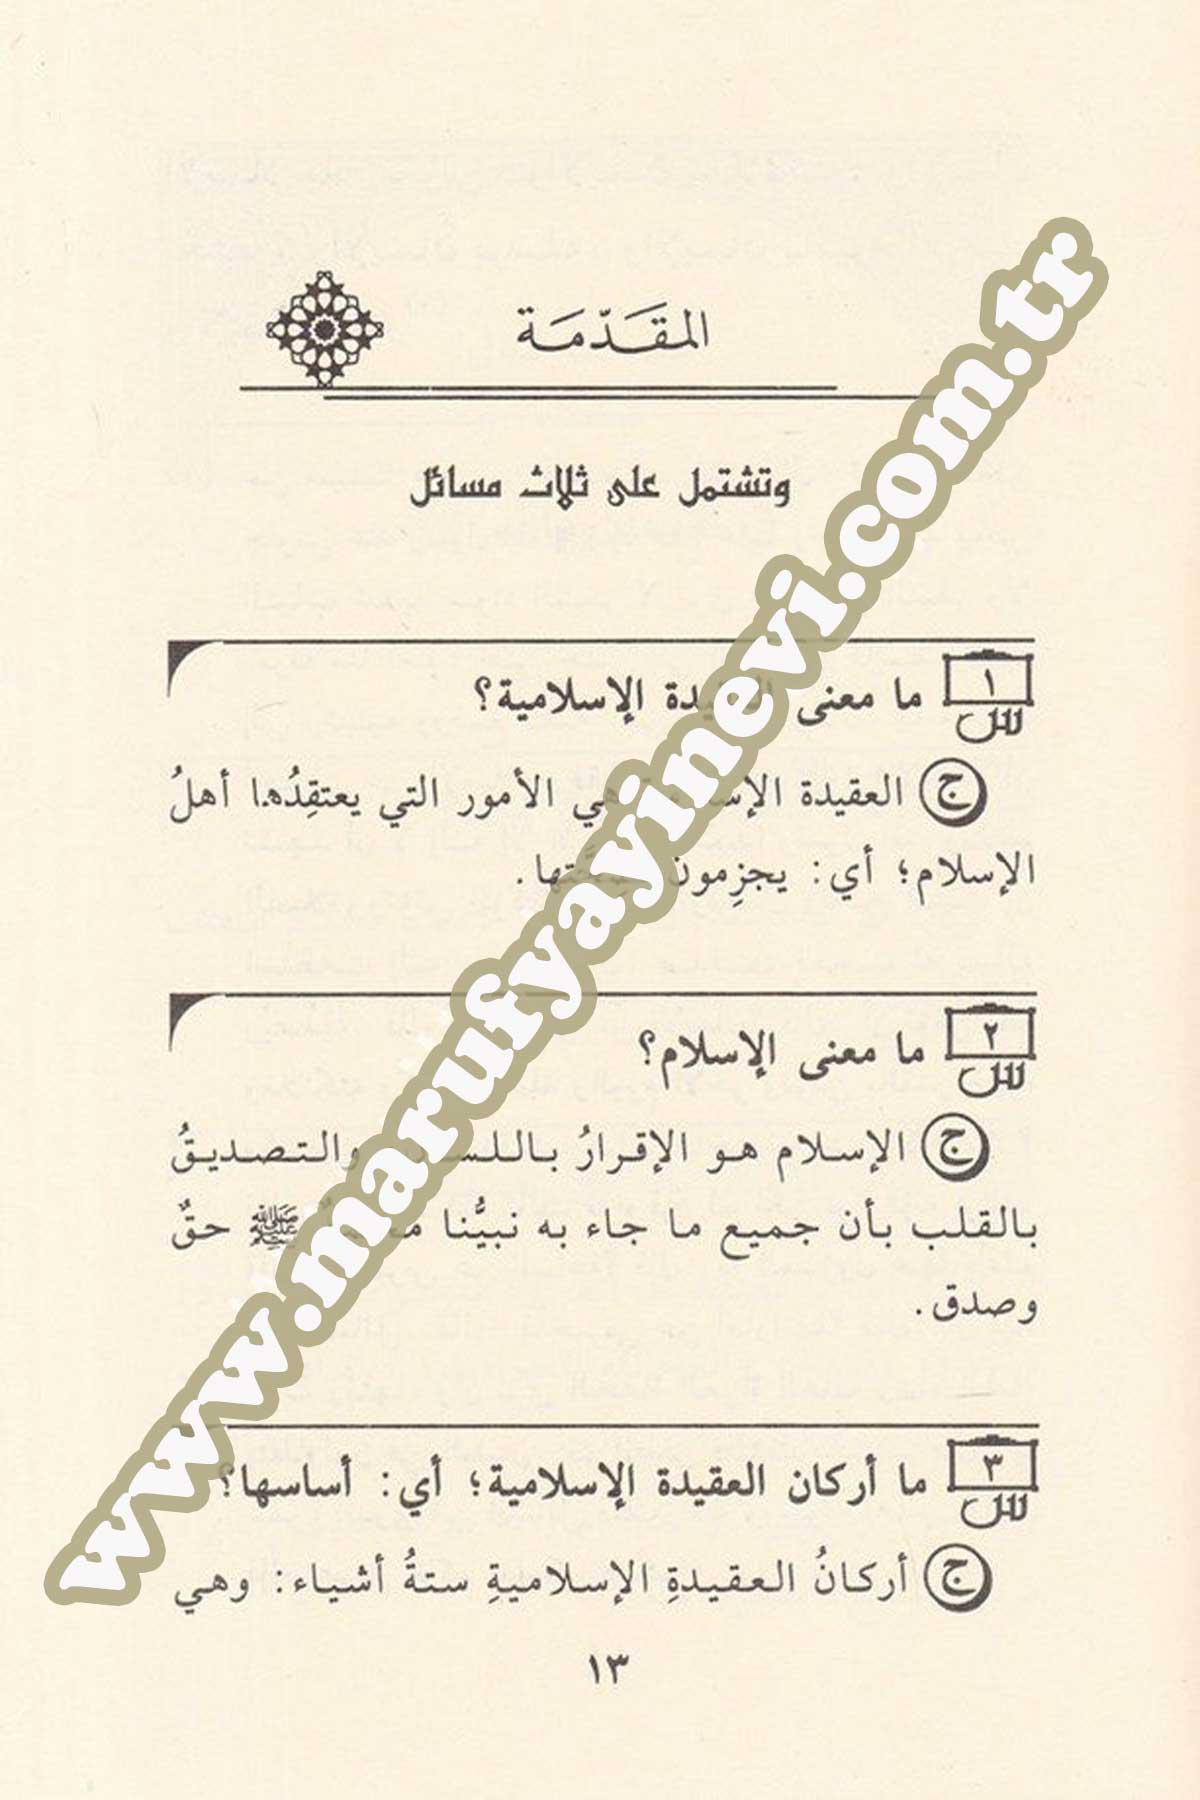 المقَدّمَة
وتشتمل على ثلاث مسائل
١
س
ما معنى العقيدة الإسلامية؟
ج العقيدة الإسلامية هي الأمور التي يعتقِدُها أهلُ
الإسلام؛ أي: يجزِمون بصحَّتها.
٢
س
ما معنى الإسلام؟
ج الإسلام هو الإقرارُ باللسان والتصديقُ
بالقلب بأن جميع ما جاء به نبيُّنا محمدٌ ﷺ حقٌ
وصدق.
٣
س
ما أركان العقيدة الإسلامية؛ أي: أساسها؟
ج أركانُ العقيدةِ الإسلاميةِ ستةُ أشياء: وهي
١٣
www.marufyayinevi.com.tr